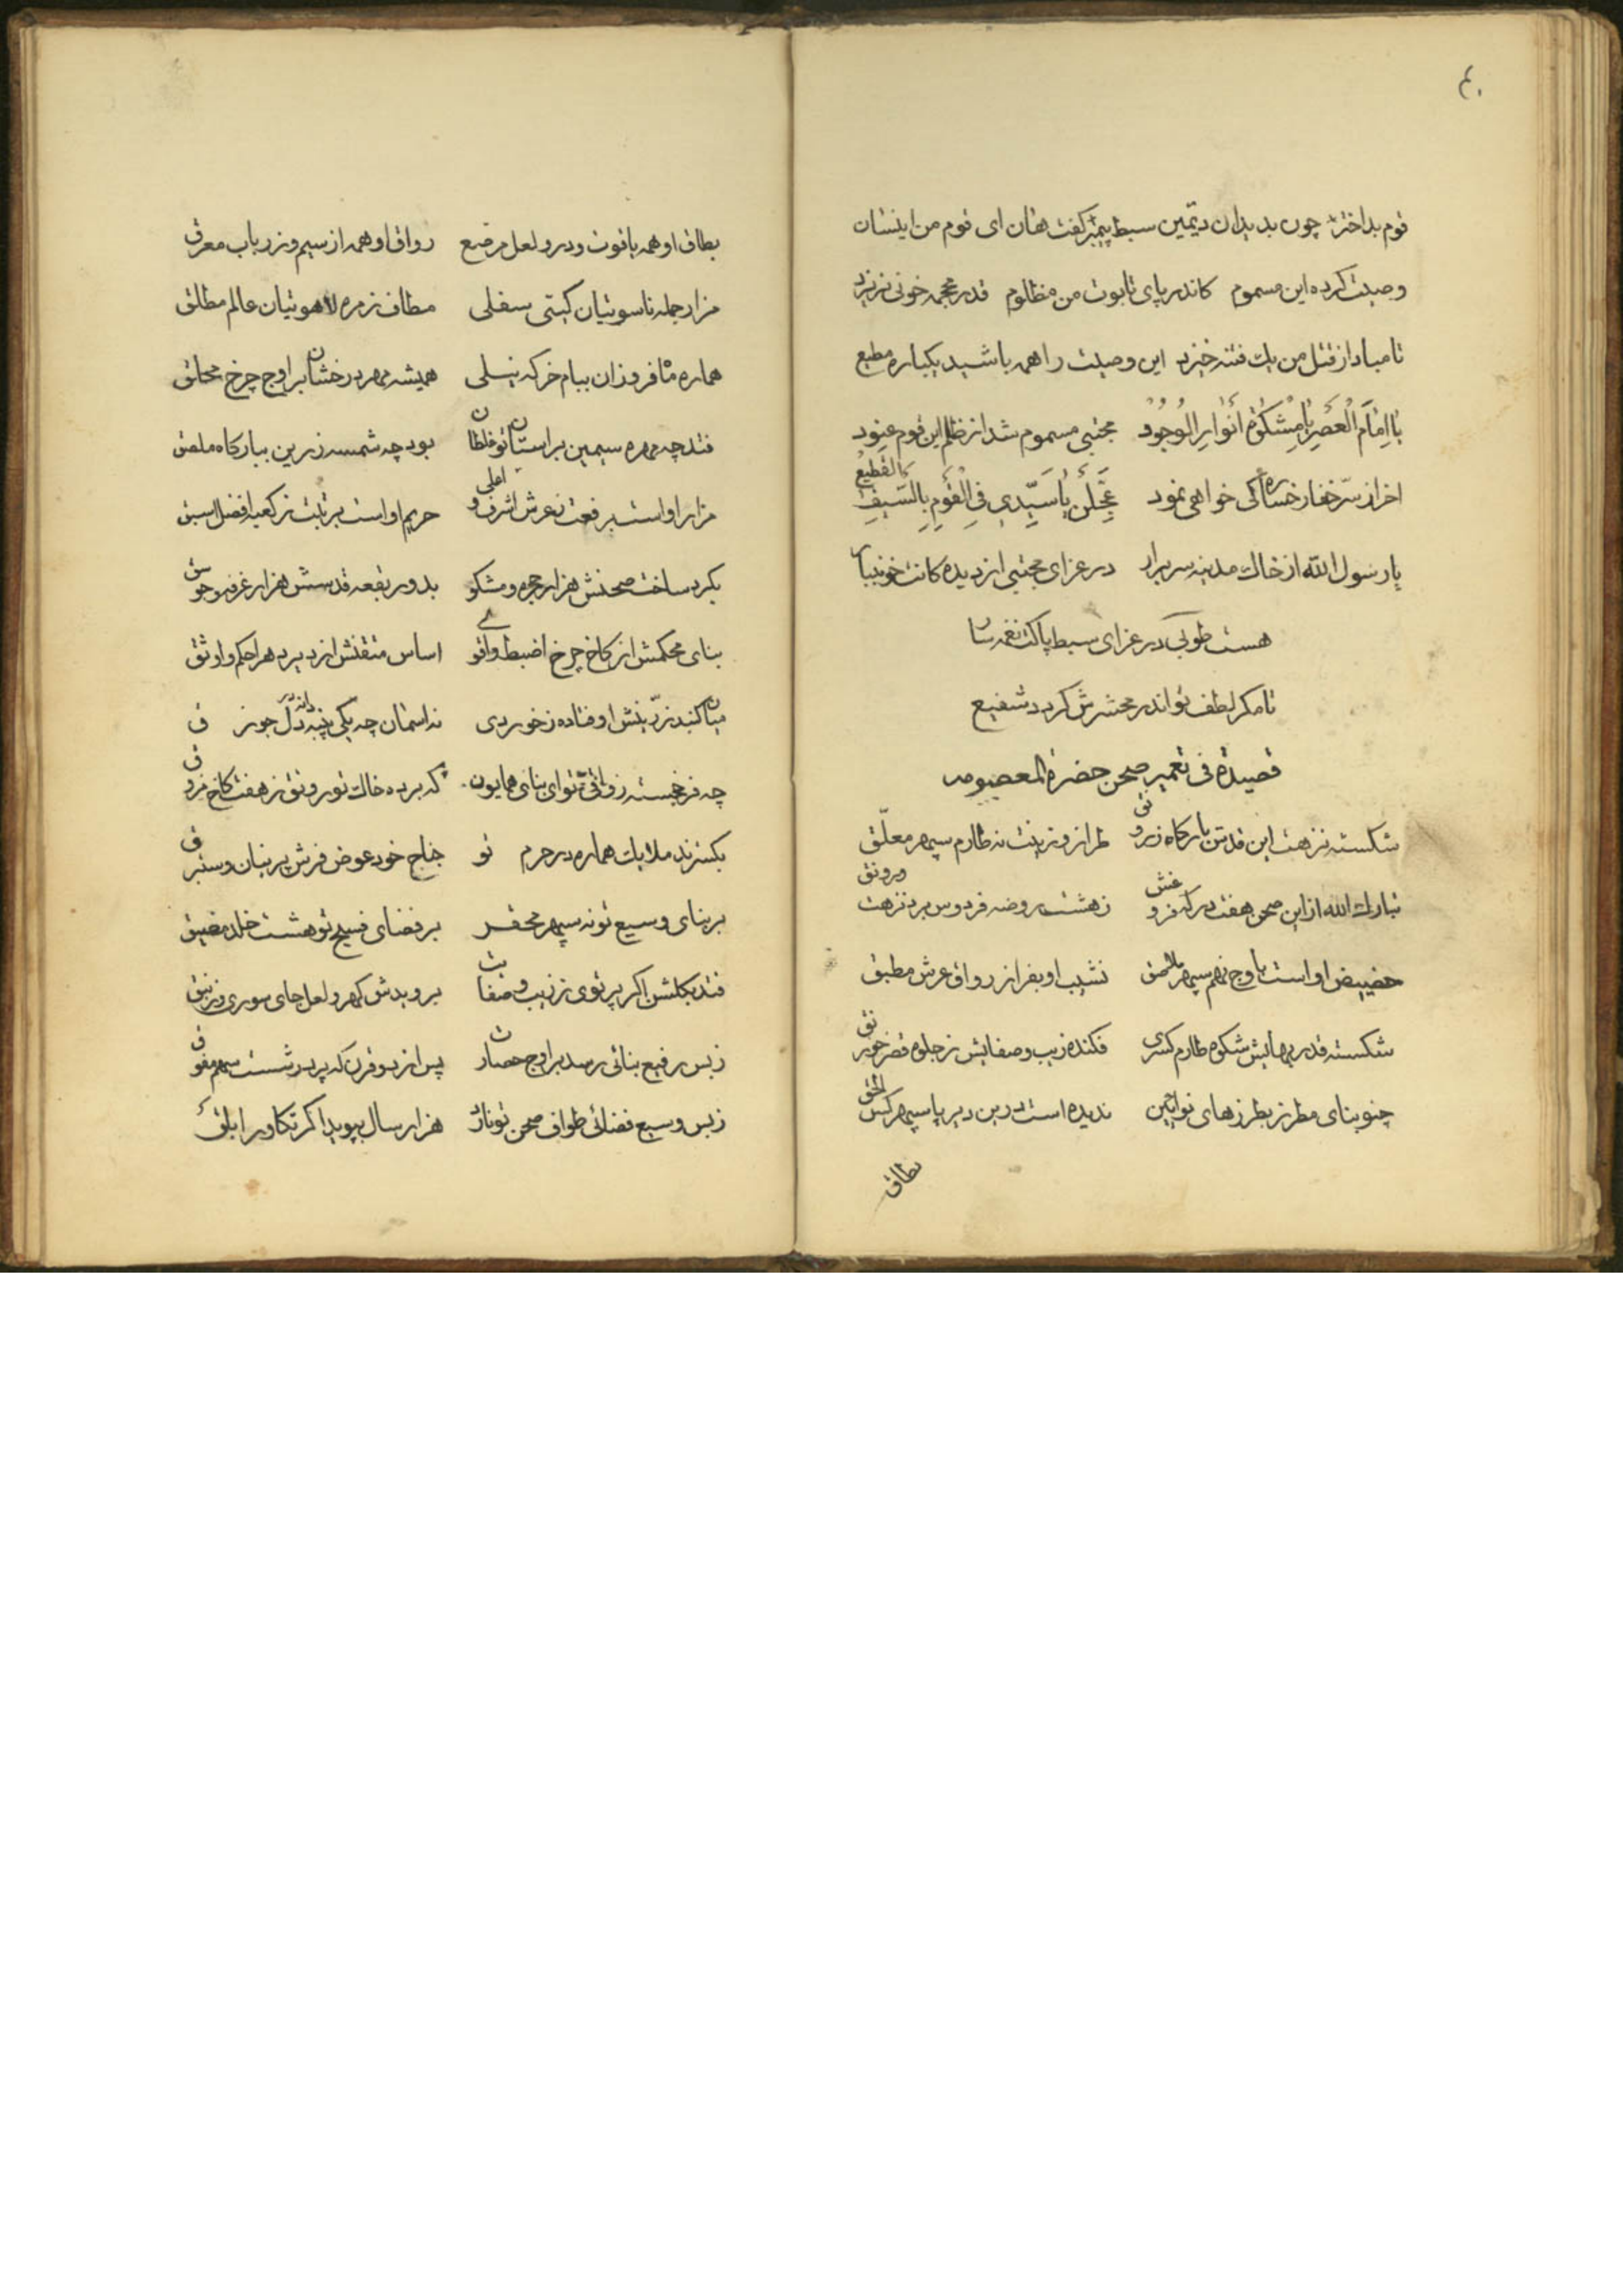 ۴۰
قوم بداختر چون بدیدان دیتمین سبط پیمبر گفت هان ای قوم من اینسان
وصیت کرده این مسموم کاندر پای تابوت من مظلوم قدر محجمه خونی نریزد
تا مبادا از قتل من یک فتنه خیزد این وصیت را همه باشید یکباره مطیع
یا اِمامَ الْعَصْرِ یا مِشْکوةَ اَنْوارِ الْوُجُود مجتبی مسموم شد از ظلم این قوم عنود
اخر از سرّ خفا رخساره کی خواهی نمود عَجِّلَنْ یا سَیِّدی فِی الْقَوْمِ بِالسَّیْفِ القطیع
یا رسول الله از خاک مدینه سر برار در عزای مجتبی از دیدکانت خون ببار
هست طوبی در عزای سبط پاکت نغمه سار
تا مکر لطف تو اندر محشرش کردد شفیع
قصیدة فی تعمیر صحن حضرة المعصومه
شکسته نزهت این قدس بارکاه زرونق طراز و زینت نه طارم سپهر معلّق
تبارک الله از این صحن هفت درکه فرو غش زهشت روضه فردوس برد نزهت ورونق
حضیض او است باوج نهم سپهر ملاصق نشیب او بفراز رواق عرش مطبق
شکسته قدر بهایش شکوه طارم کسری فکنده زیب و صفایش ز جلوه قصر خورنق
چنو بنای مطرز بطرزهای نوائین ندیده است درین دیر پا سپهر کس الحق
بطاق
بطاق او همه یاقوت و در و لعل مرصع رواق او همه از سیم و زر و باب معرق
مزار جمله ناسوتیان کیتی سفلی مطاف زمره لاهوتیان عالم مطلق
هماره ماه فروزان ببام خرکه نیلی همیشه مهر درخشان براوج چرخ محلق
فتد چه مهره سیمین براستان تو غلطان بود چه شمسه زرین ببارکاه ملصق
مزار او است برفعت زعرش اشرف و اعلی حریم او است برتبت ز کعبه افضل و اسبق
بکرد ساخت صحنش هزار حجره و مشکو بدور بقعه قدسش هزار غرفه و جوسق
بنای محکمش از کاخ چرخ اضبط و اقوی اساس متقنش از دیر دهر احکم و اوثق
میان کنبد زرّینش اوفتاده ز خوردی نه اسمان چه یکی پنبه دانه در دل جوزق
چه فرخجسته رواقی تو ای بنای همایون که برده خاک تو رونق ز هفت کاخ مزوق
بکسترند ملایک هماره در حرم تو جناح خود عوض فرش پرنیان و ستبرق
بر بنای وسیع تو نه سپهر محقر بر فضای فسیح تو هشت خلد مضیق
فتد بکلشن اکر پرتوی ز زیب و صفایت بروبدش کهر و لعل جای سوری و زنبق
زبس رفیع بنائی رسد براوج حصارت پس از دو قرن که پرد ز شست سهم مفوق
زبس وسیع فضائی طواف صحن تو نارد هزار سال بپوید اکر تکاور ابلق